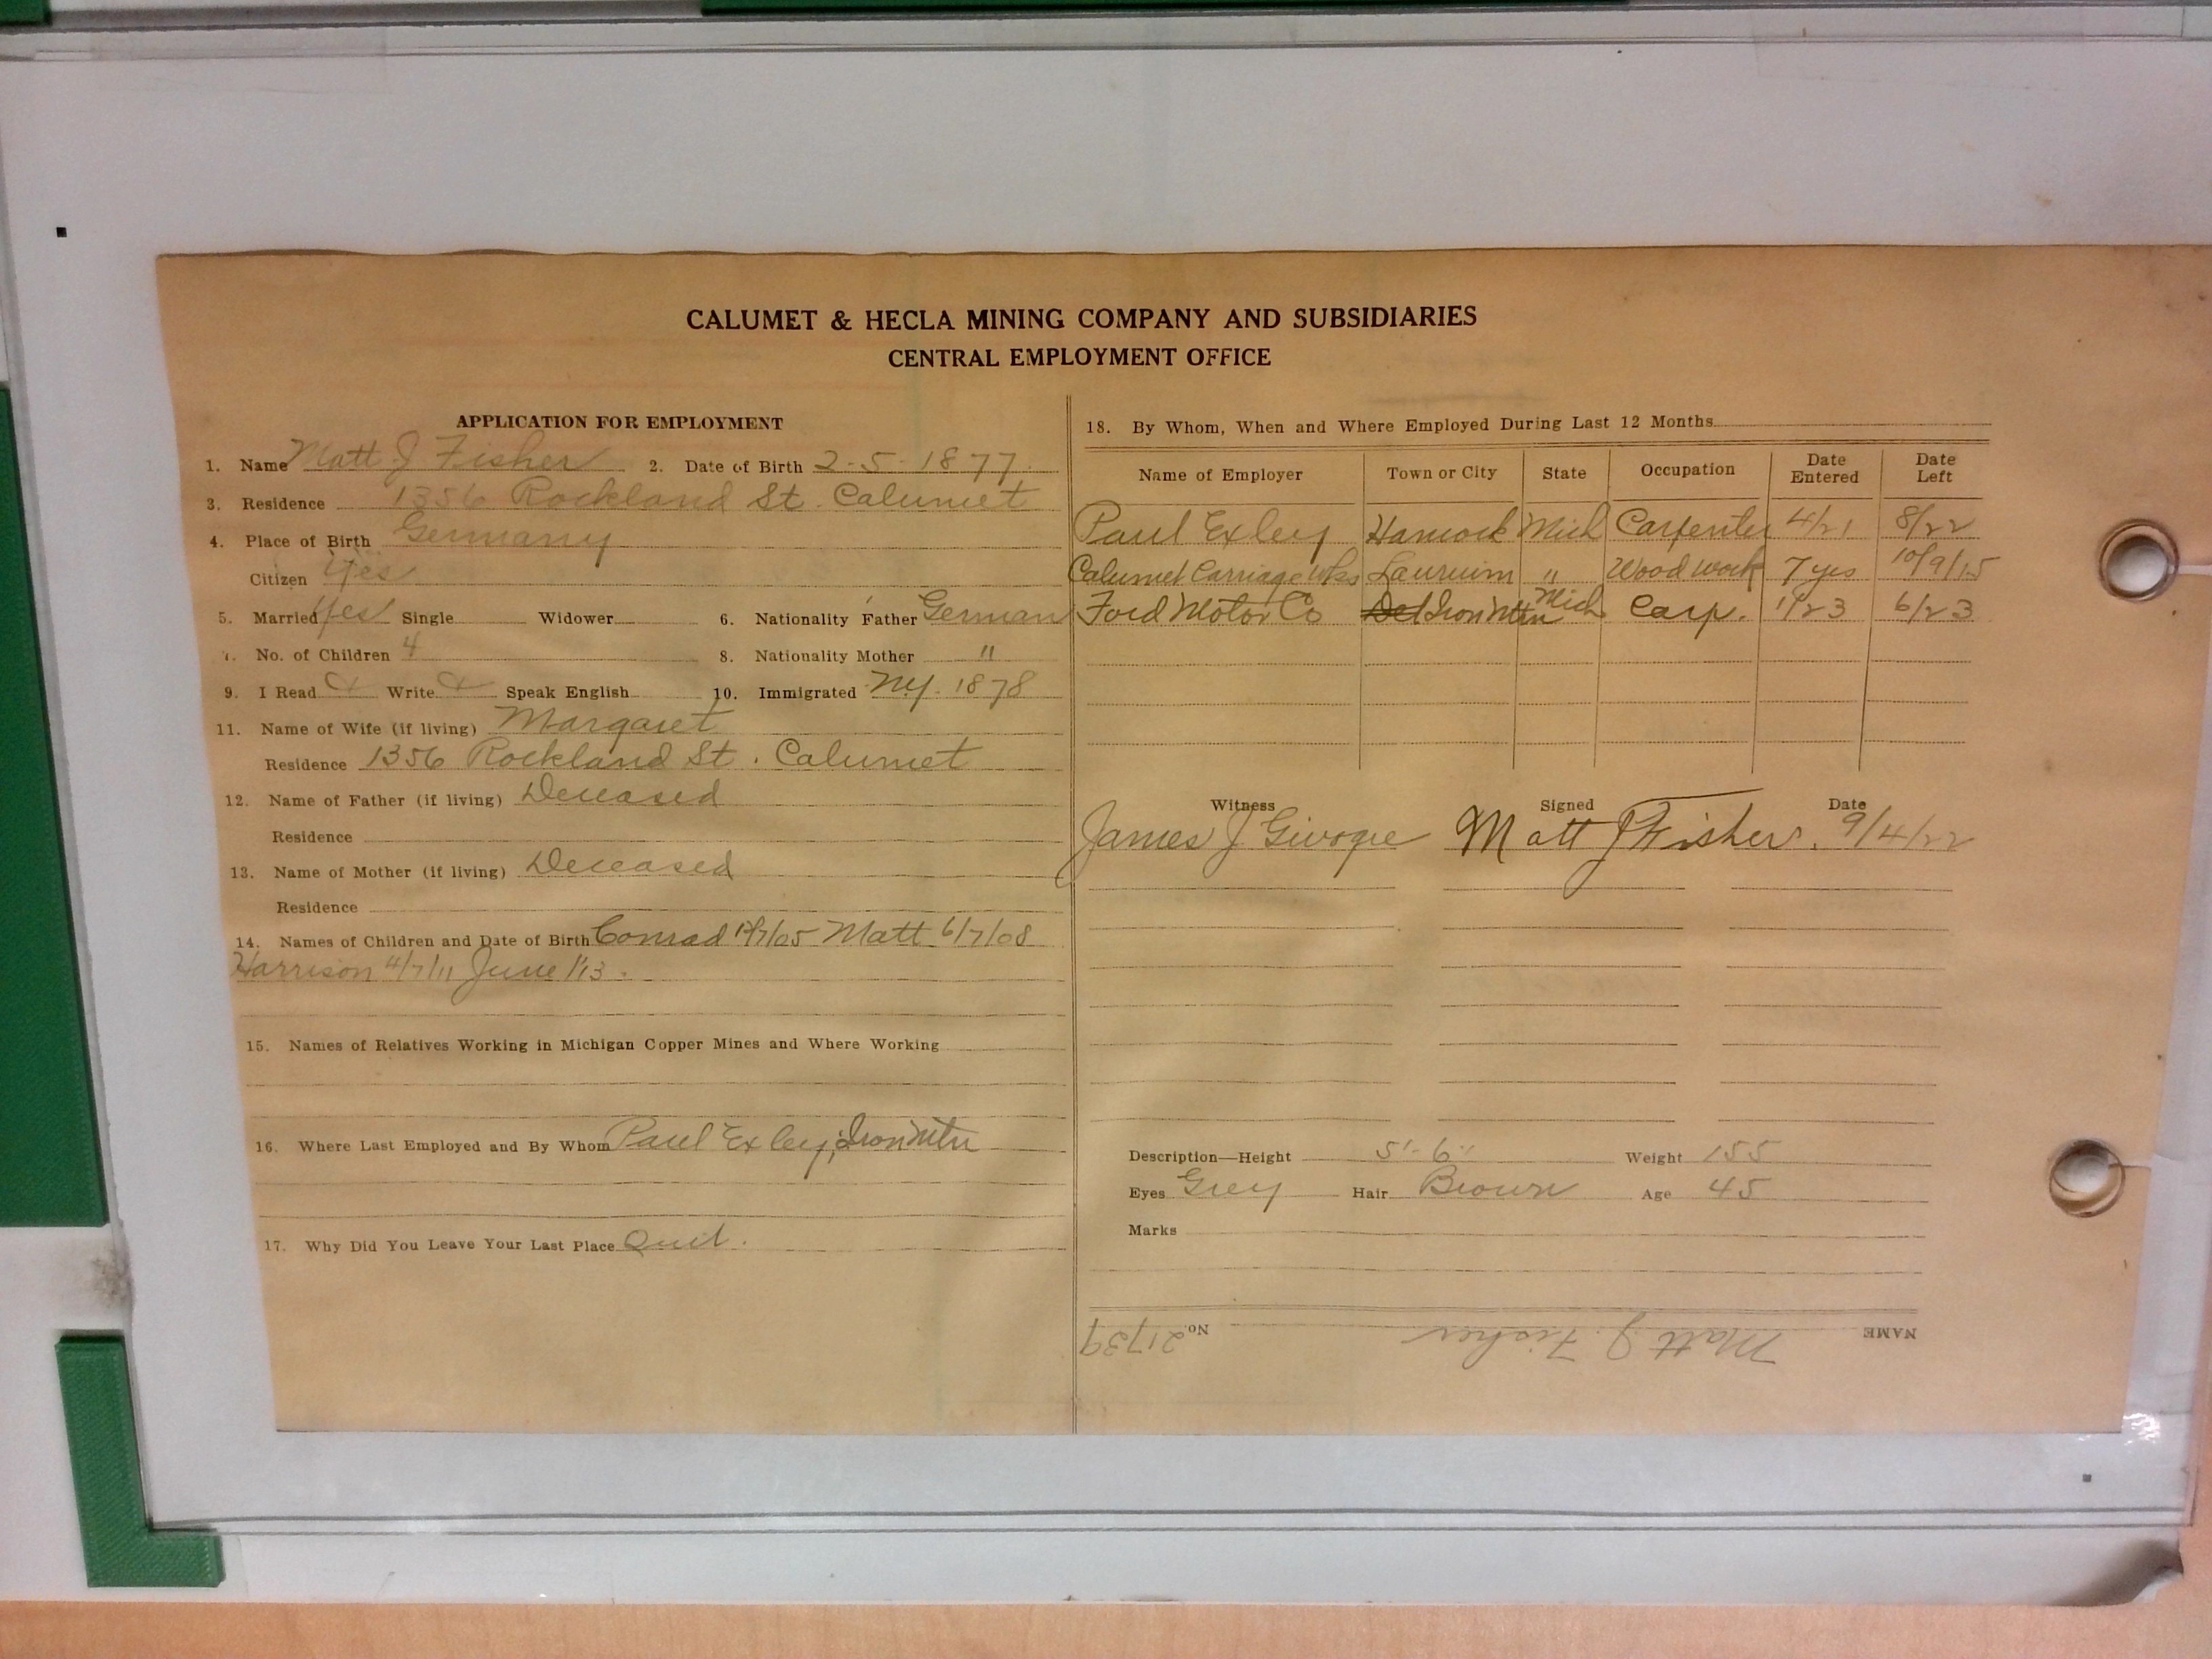 CALUMET & HECLA MINING COMPANY AND SUBSIDIARIES
CENTRAL EMPLOYMENT OFFICE
APPLICATION FOR EMPLOYMENT
1. Name Matt J Fisher 2. Date of Birth 2-5-1877
3. Residence 1356 Rockland St. Calumet
4. Place of Birth Germany
Citizen Yes
5. Married Yes Single Widower 6. Nationality Father German
7. No. of Children 4 8. Nationality Mother "
9. I Read Write Speak English 10. Immigrated NY. 1878
11. Name of Wife (if living) Margaret
Residence 1356 Rockland St. Calumet
12. Name of Father (if living) Deceased
Residence
13. Name of Mother (if living) Deceased
Residence
14. Names of Children and Date of Birth Conrad Matt 6/7/08
Harrison 4/7/11 June 1/13.
15. Names of Relatives Working in Michigan Copper Mines and Where Working
16. Where Last Employed and By Whom Paul Exley, Iron Mtn
17. Why Did You Leave Your Last Place Quit.
18. By Whom, When and Where Employed During Last 12 Months
Name of Employer Town or City State Occupation Date Entered Date Left
Paul Exley Hancock Mich Carpenter 4/21 8/22
Calumet Carriage Wks Laurium " Wood work 7 yrs 10/9/15
Ford Motor Co Det Iron Mtn Mich Carp. 1/23 6/23
Witness Signed Date
James J Matt J Fisher. 9/4/22
Description—Height 5'-6" Weight 155
Eyes Grey Hair Brown Age 45
Marks
NAME Matt J. Fisher No. 21739